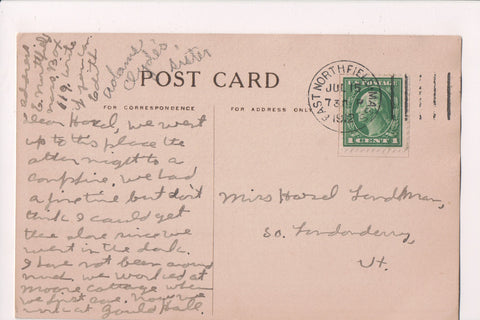 Address
E. Northfield
Mass. Box
119. write
if you can
Edith
Adams
Clyde's
sister
POST CARD
FOR CORRESPONDENCE
FOR ADDRESS ONLY
EAST NORTHFIELD MASS
JUL 15
7 30
U.S. POSTAGE
1 CENT 1
Dear Hazel, we went
up to this place the
other night to a
campfire. we had
a fine time but don't
think I could get
there alone since we
went in the dark.
I have not been around
much. we worked at
Moore Cottage when
we first came. Now we
are at Gould Hall.
Miss Hazel Landman,
So. Londonderry,
Vt.